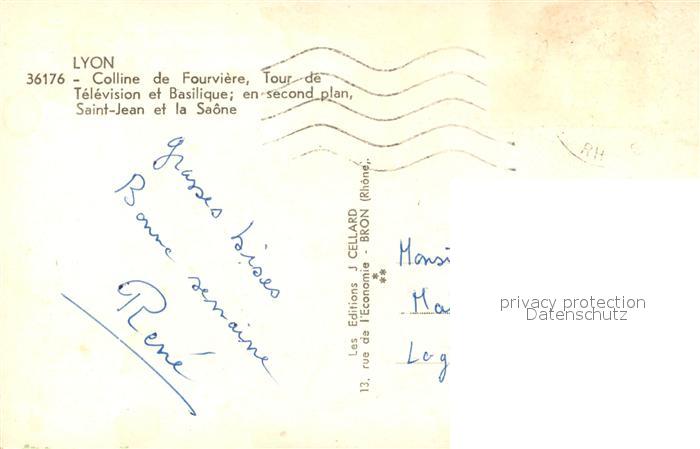 LYON
36176 - Colline de Fourvière, Tour de
Télévision et Basilique; en second plan,
Saint-Jean et la Saône
grosses bises
Bonne semaine
René
Les Editions J CELLARD
13, rue de l'Economie - BRON (Rhône).
RH
Monsi
Ma
Log
privacy protection
Datenschutz